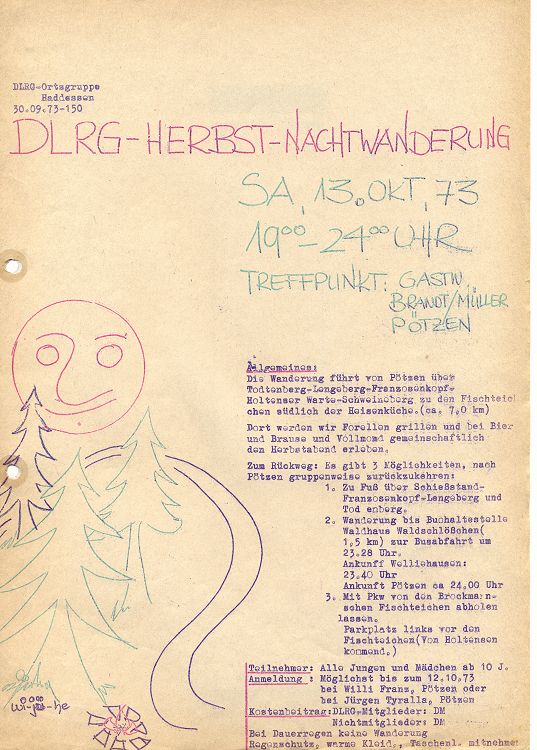 DLRG-Ortsgruppe
Haddessen
30.09.73-150
DLRG-HERBST-NACHTWANDERUNG
SA, 13. OKT, 73
19⁰⁰-24⁰⁰ UHR
TREFFPUNKT: GASTW
BRANDT/MÜLLER
PÖTZEN
Allgemeines:
Die Wanderung führt von Pötzen über
Todtenberg-Lengeberg-Franzosenkopf-
Holtenser Warte-Schweineberg zu den Fischteic
chen südlich der Heisenküche.(ca. 7,0 km)
Dort werden wir Forellen grillen und bei Bier
und Brause und Vollmond gemeinschaftlich
den Herbstabend erleben.
Zum Rückweg: Es gibt 3 Möglichkeiten, nach
Pötzen gruppenweise zurückzukehren:
1. Zu Fuß über Schießstand-
Franzosenkopf-Lengeberg und
Tod enberg.
2. Wanderung bis Bushaltestelle
Waldhaus Waldschlößchen(
1,5 km) zur Busabfahrt um
23.28 Uhr.
Ankunff Welliehausen:
23.40 Uhr
Ankunft Pötzen ca 24.00 Uhr
3. Mit Pkw von den Brockman-
schen Fischteichen abholen
lassen.
Parkplatz links vor den
Fischteichen(Von Holtensen
kommend.)
Teilnehmer: Alle Jungen und Mädchen ab 10 J.
Anmeldung : Möglichst bis zum 12.10.73
bei Willi Franz, Pötzen oder
bei Jürgen Tyralla, Pötzen
Kostenbeitrag:DLRG-Mitglieder: DM
Nichtmitglieder: DM
Bei Dauerregen keine Wanderung
Regenschutz, warme Kleid., Taschenl. mitnehmen